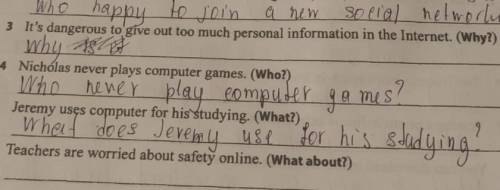 Who happy to join a new social network
3 It's dangerous to give out too much personal information in the Internet. (Why?)
Why is it
4 Nicholas never plays computer games. (Who?)
Who never play computer games?
Jeremy uses computer for his studying. (What?)
What does Jeremy use for his studying?
Teachers are worried about safety online. (What about?)